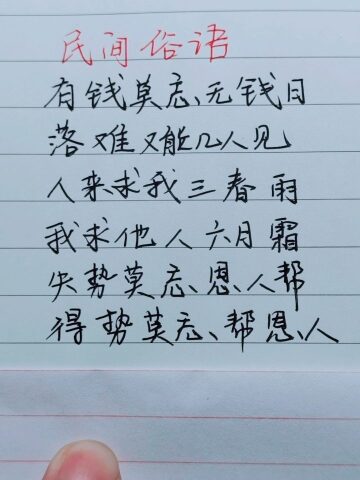 民间俗语
有钱莫忘无钱日
落难又能几人见
人来求我三春雨
我求他人六月霜
失势莫忘恩人帮
得势莫忘帮恩人